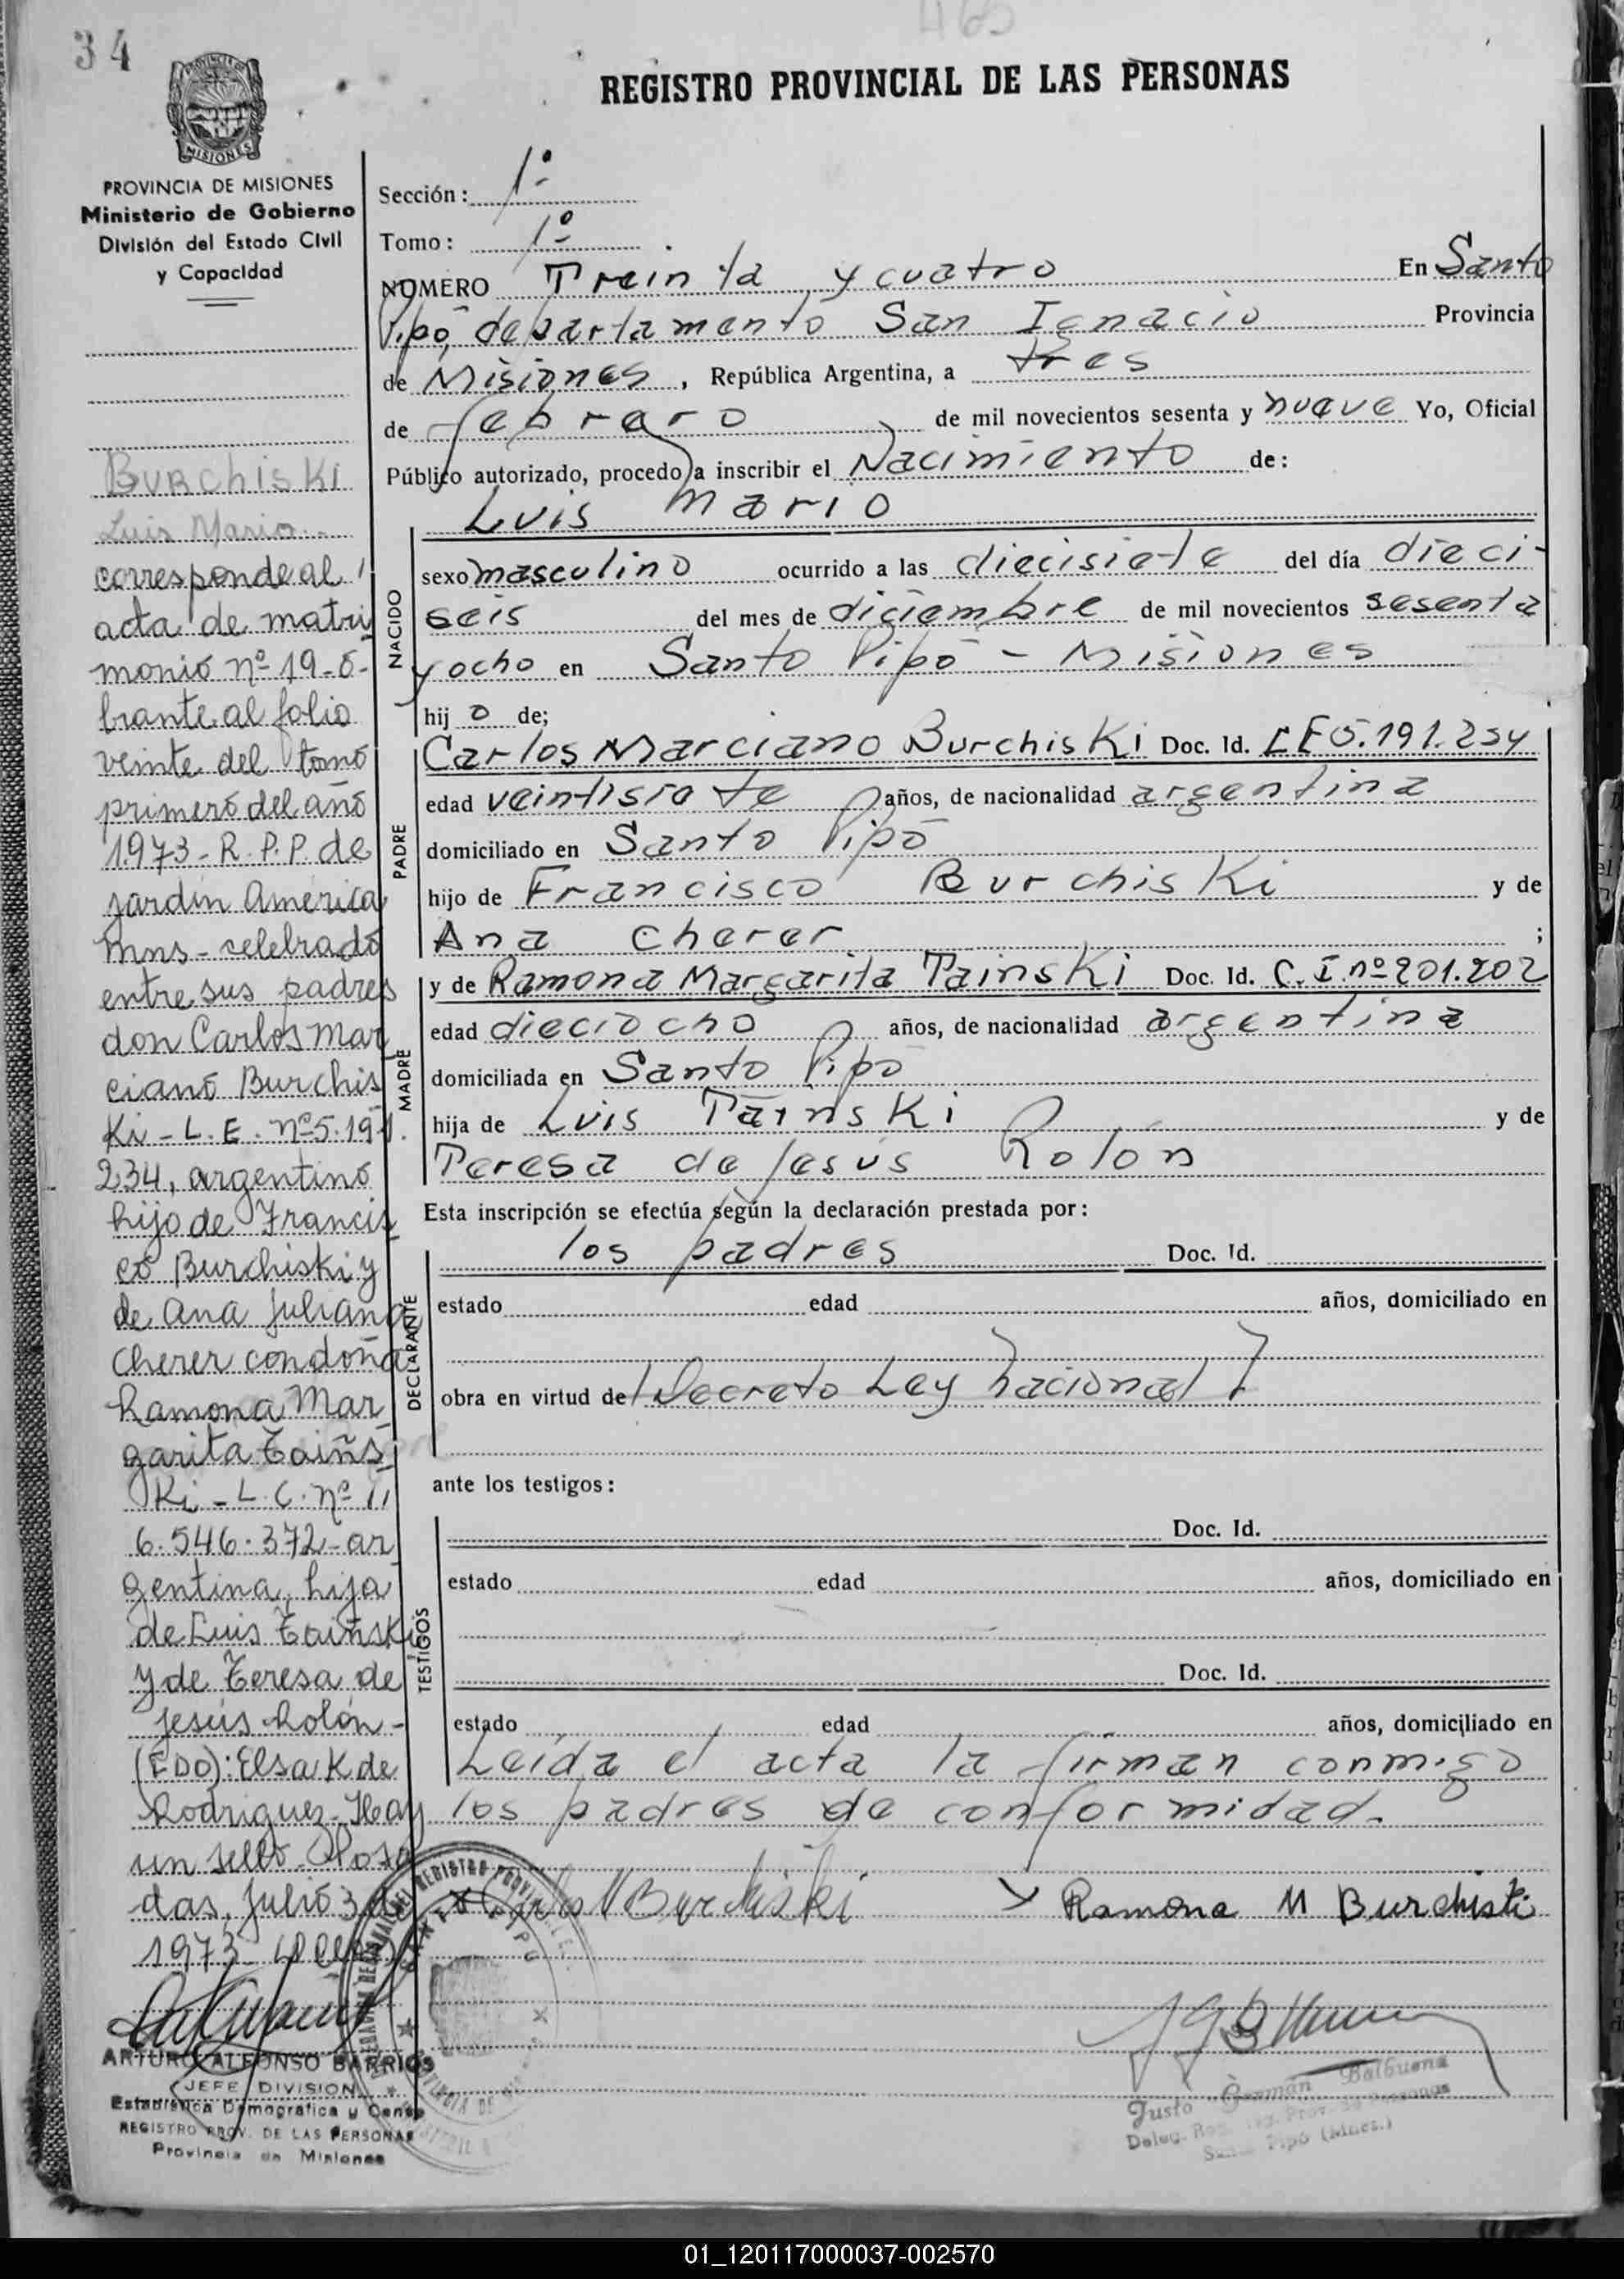 34
465
REGISTRO PROVINCIAL DE LAS PERSONAS
MISIONES
PROVINCIA DE MISIONES
Ministerio de Gobierno
División del Estado Civil
y Capacidad
Sección: 1º
Tomo: 1º
NUMERO Treinta y cuatro En Santo
Pipó, departamento San Ignacio Provincia
de Misiones, República Argentina, a tres
de febrero de mil novecientos sesenta y nueve Yo, Oficial
Público autorizado, procedo a inscribir el Nacimiento de:
Luis Mario
NACIDO
sexo masculino ocurrido a las diecisiete del día dieci-
seis del mes de diciembre de mil novecientos sesenta
y ocho en Santo Pipó - Misiones
hij o de;
PADRE
Carlos Marciano Burchiski Doc. Id. LE 5.191.234
edad veintisiete años, de nacionalidad argentina
domiciliado en Santo Pipó
hijo de Francisco Burchiski y de
Ana Cherer ;
MADRE
y de Ramona Margarita Tainski Doc. Id. C.I.nº 201.202
edad dieciocho años, de nacionalidad argentina
domiciliada en Santo Pipó
hija de Luis Tainski y de
Teresa de Jesús Rolón
Esta inscripción se efectúa según la declaración prestada por:
DECLARANTE
los padres Doc. Id.
estado edad años, domiciliado en
obra en virtud de Decreto Ley Nacional
ante los testigos:
TESTIGOS
Doc. Id.
estado edad años, domiciliado en
Doc. Id.
estado edad años, domiciliado en
Leída el acta la firman conmigo
los padres de conformidad.
Burchiski
Ramona M Burchiski
Justo Germán Balbuena
Pipó (Mnes.)
Burchiski
Luis Mario
corresponde al
acta de matri
monio nº 19-o-
brante al folio
veinte del tomo
primero del año
1973-R.P.P. de
Jardín América
Mns-celebrado
entre sus padres
don Carlos Mar
ciano Burchis
Ki-L.E. nº 5.191.
234, argentino
hijo de Francis
co Burchiski y
de Ana Juliana
Cherer con doña
Ramona Mar
garita Taiñs
Ki-L.C. nº
6.546.372-ar
gentina, hija
de Luis Taiñski
y de Teresa de
Jesús Rolón-
(FDO): Elsa K de
Rodriguez-Hay
un sello-Posa
das, Julio 3 de
1973
ARTURO ALFONSO BARRIOS
JEFE DIVISION
Estadística Demográfica y Censo
REGISTRO PROV. DE LAS PERSONAS
Provincia de Misiones
01_120117000037-002570